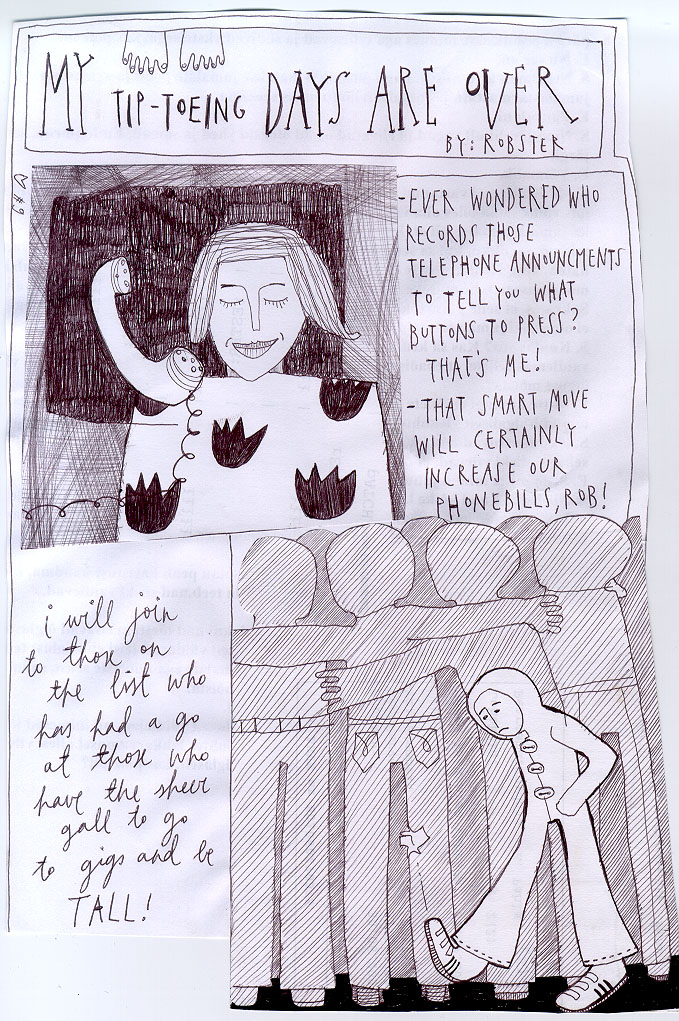 MY TIP-TOEING DAYS ARE OVER
BY: ROBSTER
-EVER WONDERED WHO
RECORDS THOSE
TELEPHONE ANNOUNCMENTS
TO TELL YOU WHAT
BUTTONS TO PRESS?
THAT'S ME!
-THAT SMART MOVE
WILL CERTAINLY
INCREASE OUR
PHONEBILLS, ROB!
i will join
to those on
the list who
has had a go
at those who
have the sheer
gall to go
to gigs and be
TALL!